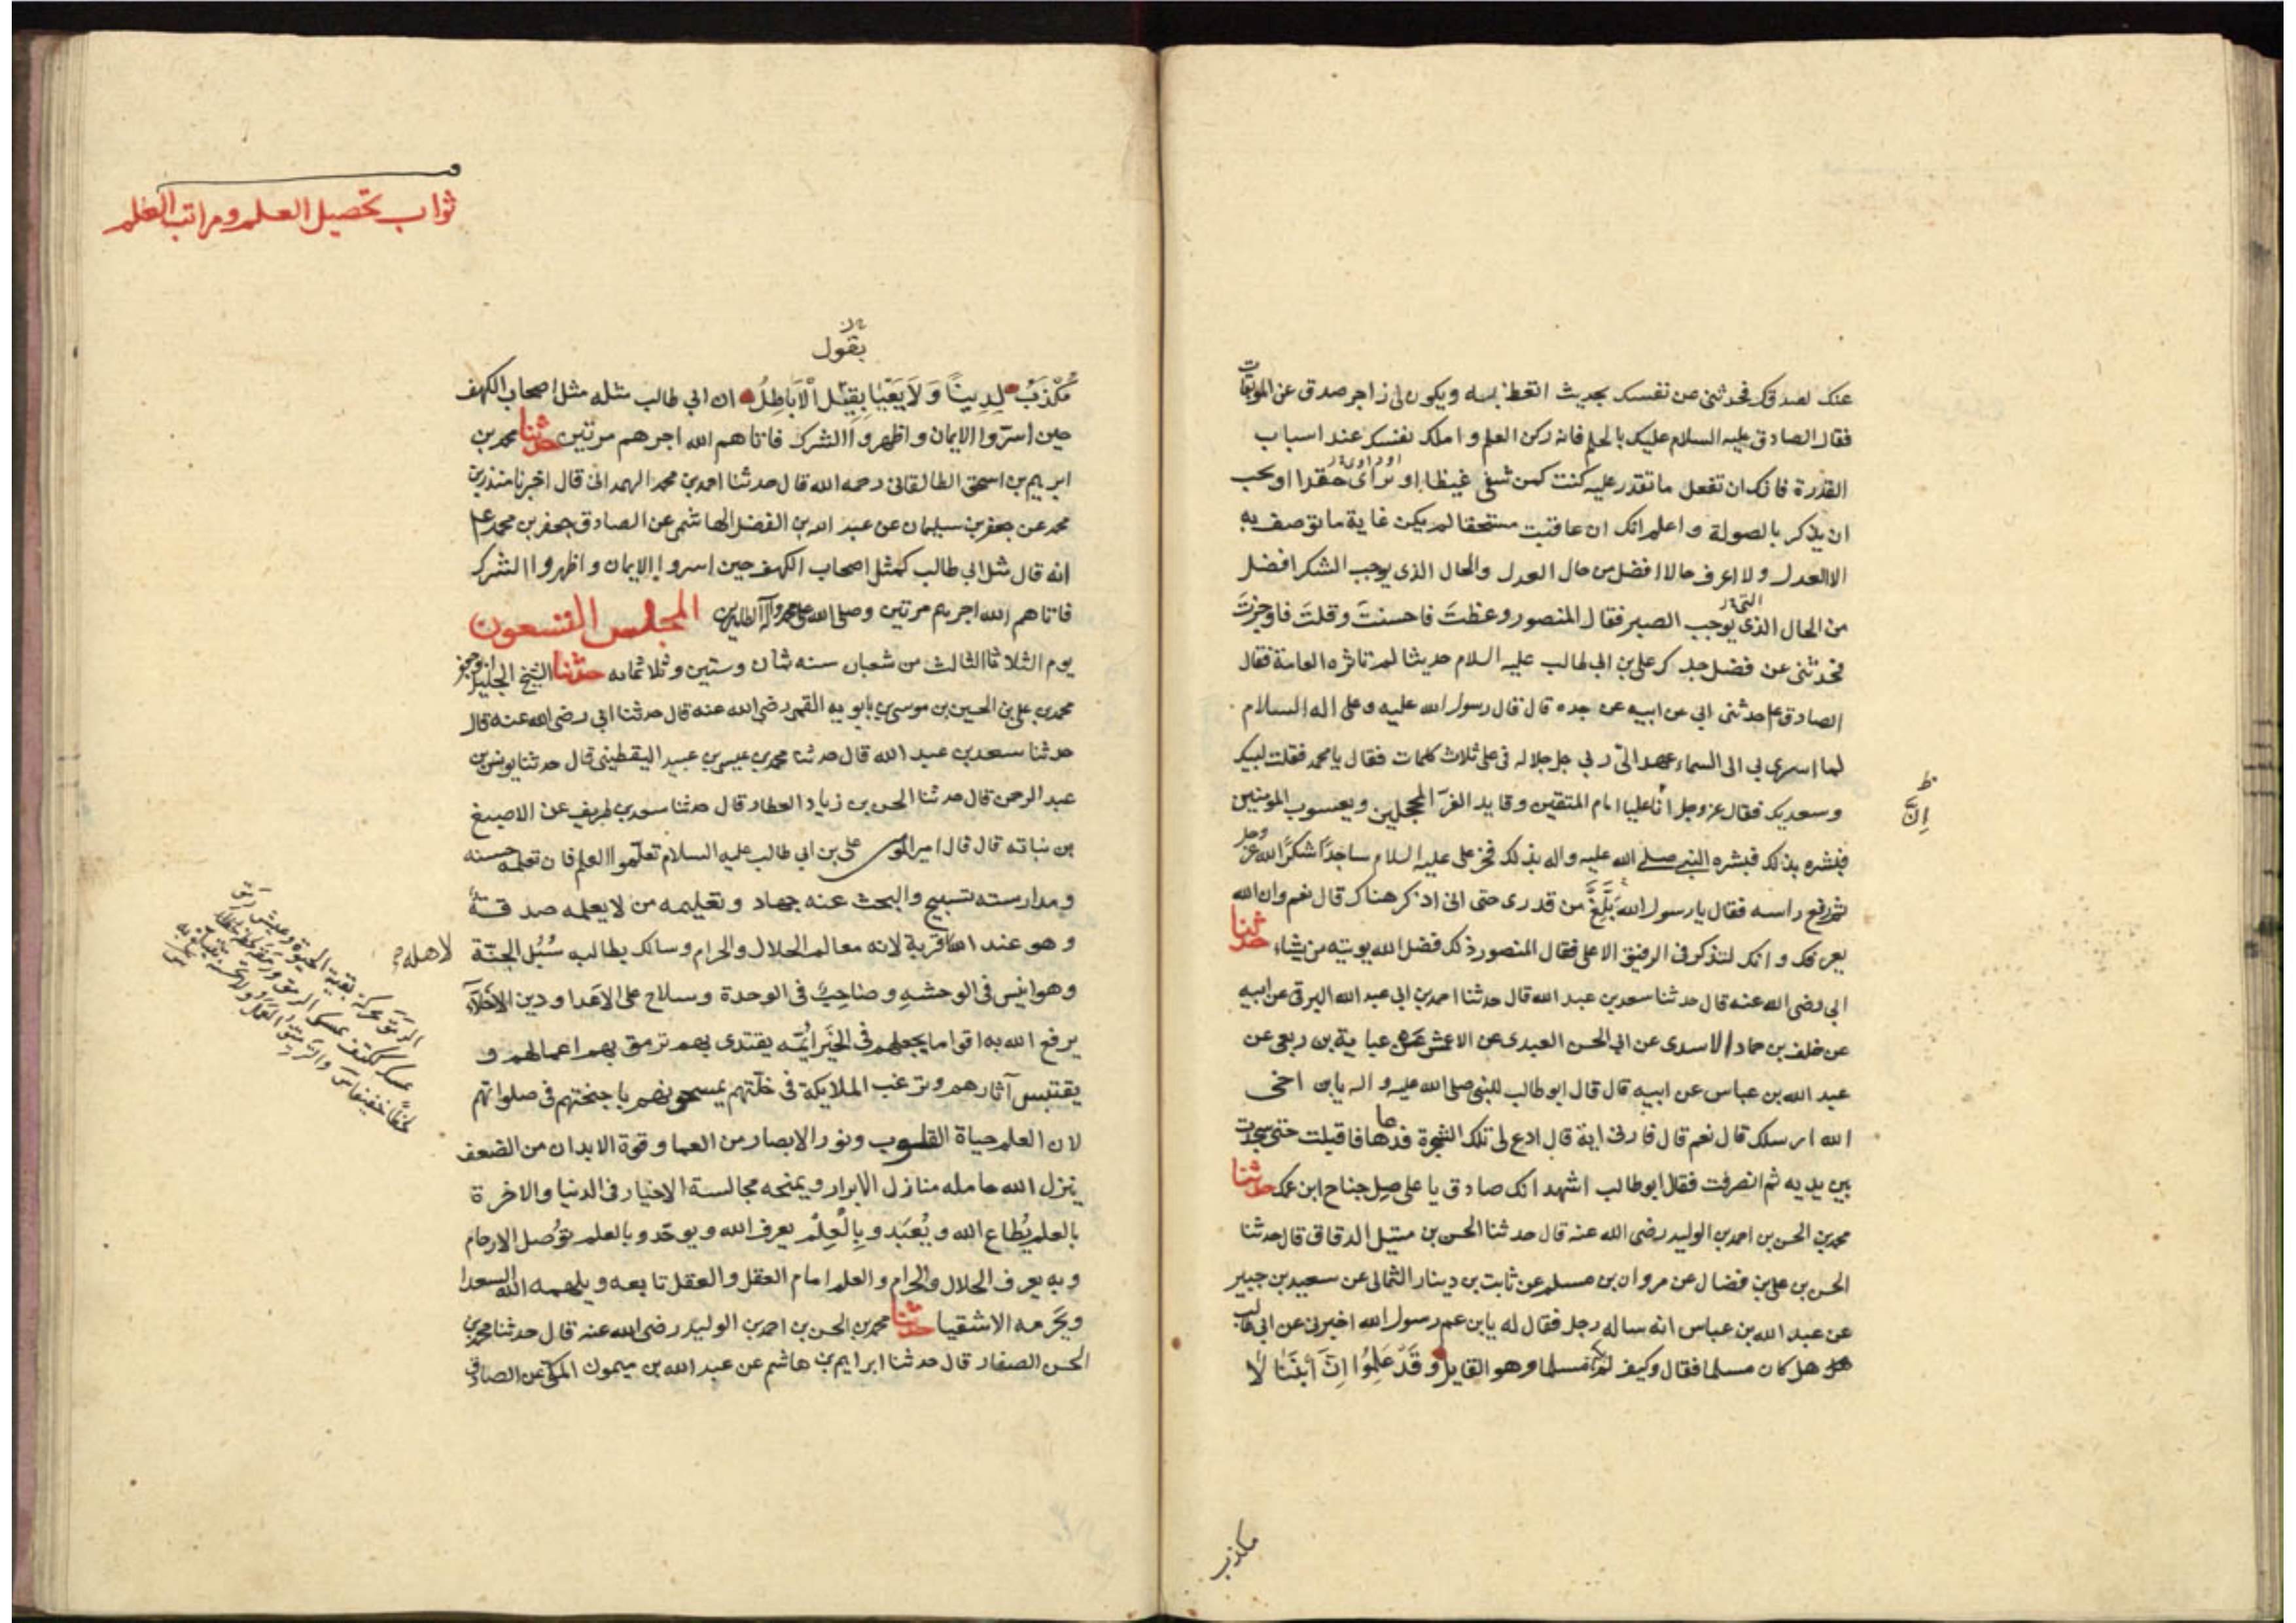 عنك لصدوق فحدثنى من نفسك بحديث اتعظ به ويكون لى زاجر صدق عن الموبقات
فقال الصادق عليه السلام عليك بالحلم فانه ركن العلم واملك نفسك عند اسباب
القدرة فانك ان تفعل ما تقدر عليه كنت كمن شفى غيظا او حقدا او يحب
ان يذكر بالصولة واعلم انك ان عاقبت مستحقا لم يكن غاية ما توصف به
الا العدل ولا اعرف حالا افضل من حال العدل والحال الذى يوجب الشكر افضل
من الحال الذى يوجب الصبر فقال المنصور وعظتَ فاحسنتَ وقلتَ فاوجزتَ
فحدثنى عن فضل جدك على بن ابى طالب عليه السلام حديثا لم تاثره العامة فقال
الصادق ع حدثنى ابى عن ابيه عن جده قال قال رسول الله عليه وعلى اله السلام
لما اسرى بى الى السماء عهد الىّ ربى جل جلاله فى على ثلاث كلمات فقال يا محمد فقلت لبيك
وسعديك فقال عز وجل انّ عليا امام المتقين وقايد الغرّ المحجلين ويعسوب المومنين
ظ
اِنّ
فبشره بذلك فبشره النبى صلى الله عليه واله بذلك فخر على عليه السلام ساجدًا شكرًا لله عز وجل
ثم رفع راسه فقال يا رسول الله بَلَّغَ من قدرى حتى انى اذكر هناك قال نعم وان الله
يعرفك وانك لتذكر فى الرفيق الاعلى فقال المنصور ذلك فضل الله يوتيه من يشاء حدثنا
ابى رضى الله عنه قال حدثنا سعد بن عبد الله قال حدثنا احمد بن ابى عبد الله البرقى عن ابيه
عن خلف بن حماد الاسدى عن ابى الحسن العبدى عن الاعمش عن عباية بن ربعى عن
عبد الله بن عباس عن ابيه قال قال ابو طالب للنبى صلى الله عليه واله يا بن اخى
الله ارسلك قال نعم قال فارنى اية قال ادع لى تلك الشجرة فدعاها فاقبلت حتى سجدت
بين يديه ثم انصرفت فقال ابو طالب اشهد انك صادق يا على صِل جناح ابن عمك حدثنا
محمد بن الحسن بن احمد بن الوليد رضى الله عنه قال حدثنا الحسن بن متيل الدقاق قال حدثنا
الحسن بن على بن فضال عن مروان بن مسلم عن ثابت بن دينار الثمالى عن سعيد بن جبير
عن عبد الله بن عباس انه ساله رجل فقال له يا بن عم رسول الله اخبرنى عن ابى طالب
هل كان مسلما فقال وكيف لم يكن مسلما وهو القايل وقَدْ عَلِمُوا اِنَّ اَبْنَنَا لَا
مكذب
ثواب تحصيل العلم ومراتب العلم
بقول
مُكَذَّبٌ لِدينَا وَلاَ يَعْيَا بِقِيْلِ الْاَبَاطِلِ ان ابى طالب مثله مثل اصحاب الكهف
حين اسرّوا الايمان واظهروا الشرك فاتاهم الله اجرهم مرتين حدثنا محمد بن
ابرهيم بن اسحق الطالقانى رحمه الله قال حدثنا احمد بن محمد الهمدانى قال اخبرنا منذر بن
محمد عن جعفر بن سليمان عن عبد الله بن الفضل الهاشمى عن الصادق جعفر بن محمد ع
انه قال مثل ابى طالب كمثل اصحاب الكهف حين اسروا الايمان واظهروا الشرك
فاتاهم الله اجرهم مرتين وصلى الله على محمد وآله الطاهرين المجلس التسعون
يوم الثلاثا الثالث من شعبان سنه ثمان وستين وثلاثمايه حدثنا الشيخ الجليل ابو جعفر
محمد بن على بن الحسين بن موسى بن بابويه القمى رضى الله عنه قال حدثنا ابى رضى الله عنه قال
حدثنا سعد بن عبد الله قال حدثنا محمد بن عيسى بن عبيد اليقطينى قال حدثنا يونس بن
عبد الرحمن قال حدثنا الحسن بن زياد العطار قال حدثنا سعد بن طريف عن الاصبغ
بن نباته قال قال امير المومنين على بن ابى طالب عليه السلام تعلّموا العلم فان تعلمه حسنه
ومدارسته تسبيح والبحث عنه جهاد وتعليمه من لا يعلمه صدقة
وهو عند الله قربة لانه معالم الحلال والحرام وسالك بطالبه سُبُل الجنّة
لاهله
وهو انيس فى الوحشهِ وصَاحِبٌ فى الوحدة وسلاح على الاعدا وزين الاخلاء
يرفع الله به اقواما يجعلهم فى الخَيْرِ ائمّه يقتدى بهم ترمق بهم اعمالهم و
يقتبس آثارهم وترغب الملايكة فى خلّتهم يمسحونهم باجنحتهم فى صلواتهم
لان العلم حياة القلوب ونور الابصار من العما وقوة الابدان من الضعف
ينزل الله حامله منازل الابرار ويمنحه مجالسة الاخيار فى الدنيا والاخرة
بالعلم يُطاع الله ويُعبَد وبِالْعِلْم يعرف الله ويوحّد وبالعلم توُصل الارحام
وبه يعرف الحلال والحرام والعلم امام العقل والعقل تابعه ويلهمه الله السعدا
ويَحْرِمه الاشقيا حدثنا محمد بن الحسن بن احمد بن الوليد رضى الله عنه قال حدثنا محمد بن
الحسن الصفار قال حدثنا ابراهيم بن هاشم عن عبد الله بن ميمون المكى عن الصادق